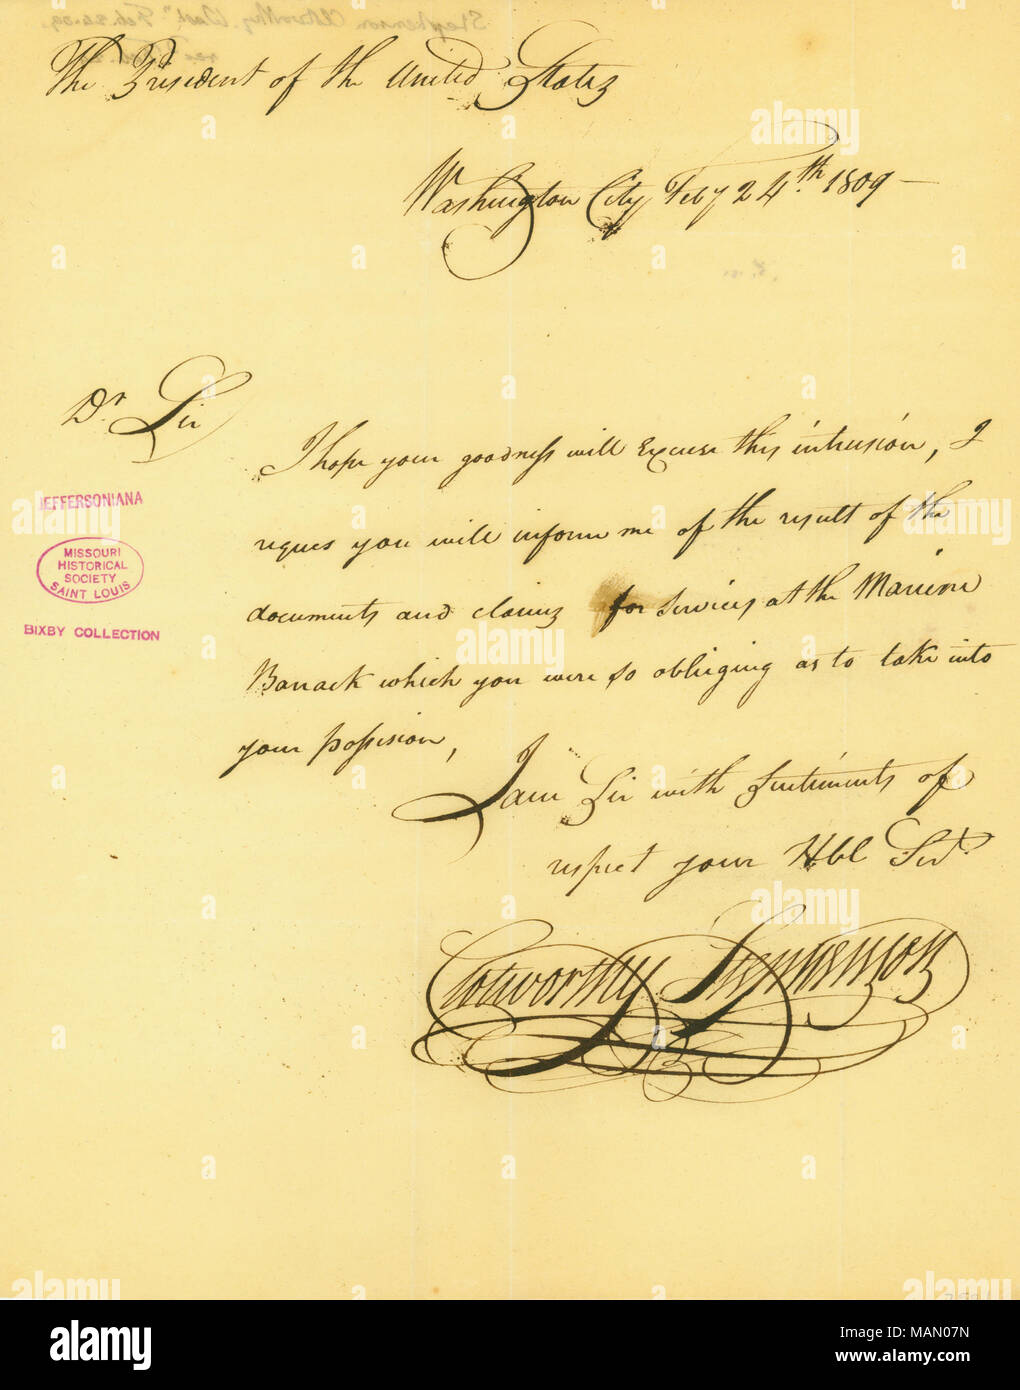 The President of the United States
Washington City Feby 24th 1809 —
Dr Sir
I hope your goodness will Excuse this intrusion, I
reques you will inform me of the result of the
documents and claims for services at the Marine
Barrack which you were so obliging as to take into
your possision,
I am Sir with Sentiments of
respect your Hbl Sert
Cotsworthy Stephenson
JEFFERSONIANA
MISSOURI
HISTORICAL
SOCIETY
SAINT LOUIS
BIXBY COLLECTION
alamy
Image ID: MAN07N
www.alamy.com